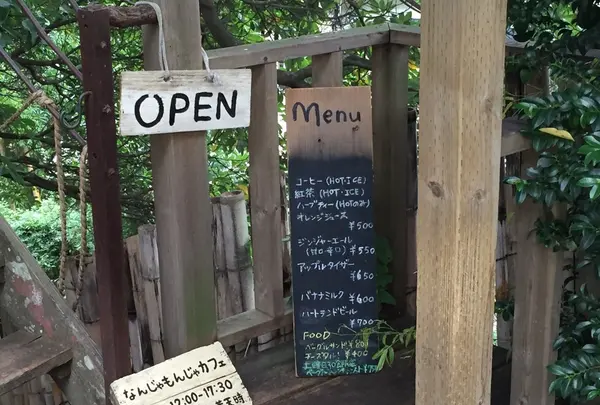 OPEN
Menu
コーヒー(HOT・ICE)
紅茶(HOT・ICE)
ハーブティー(HOTのみ)
オレンジジュース
¥500
ジンジャーエール
(甘口・辛口)¥550
アップルタイザー
¥650
バナナミルク ¥600
ハートランドビール
¥700
FOOD
ベーグルサンド¥800
チーズタルト ¥400
なんじゃもんじゃカフェ
12:00-17:30